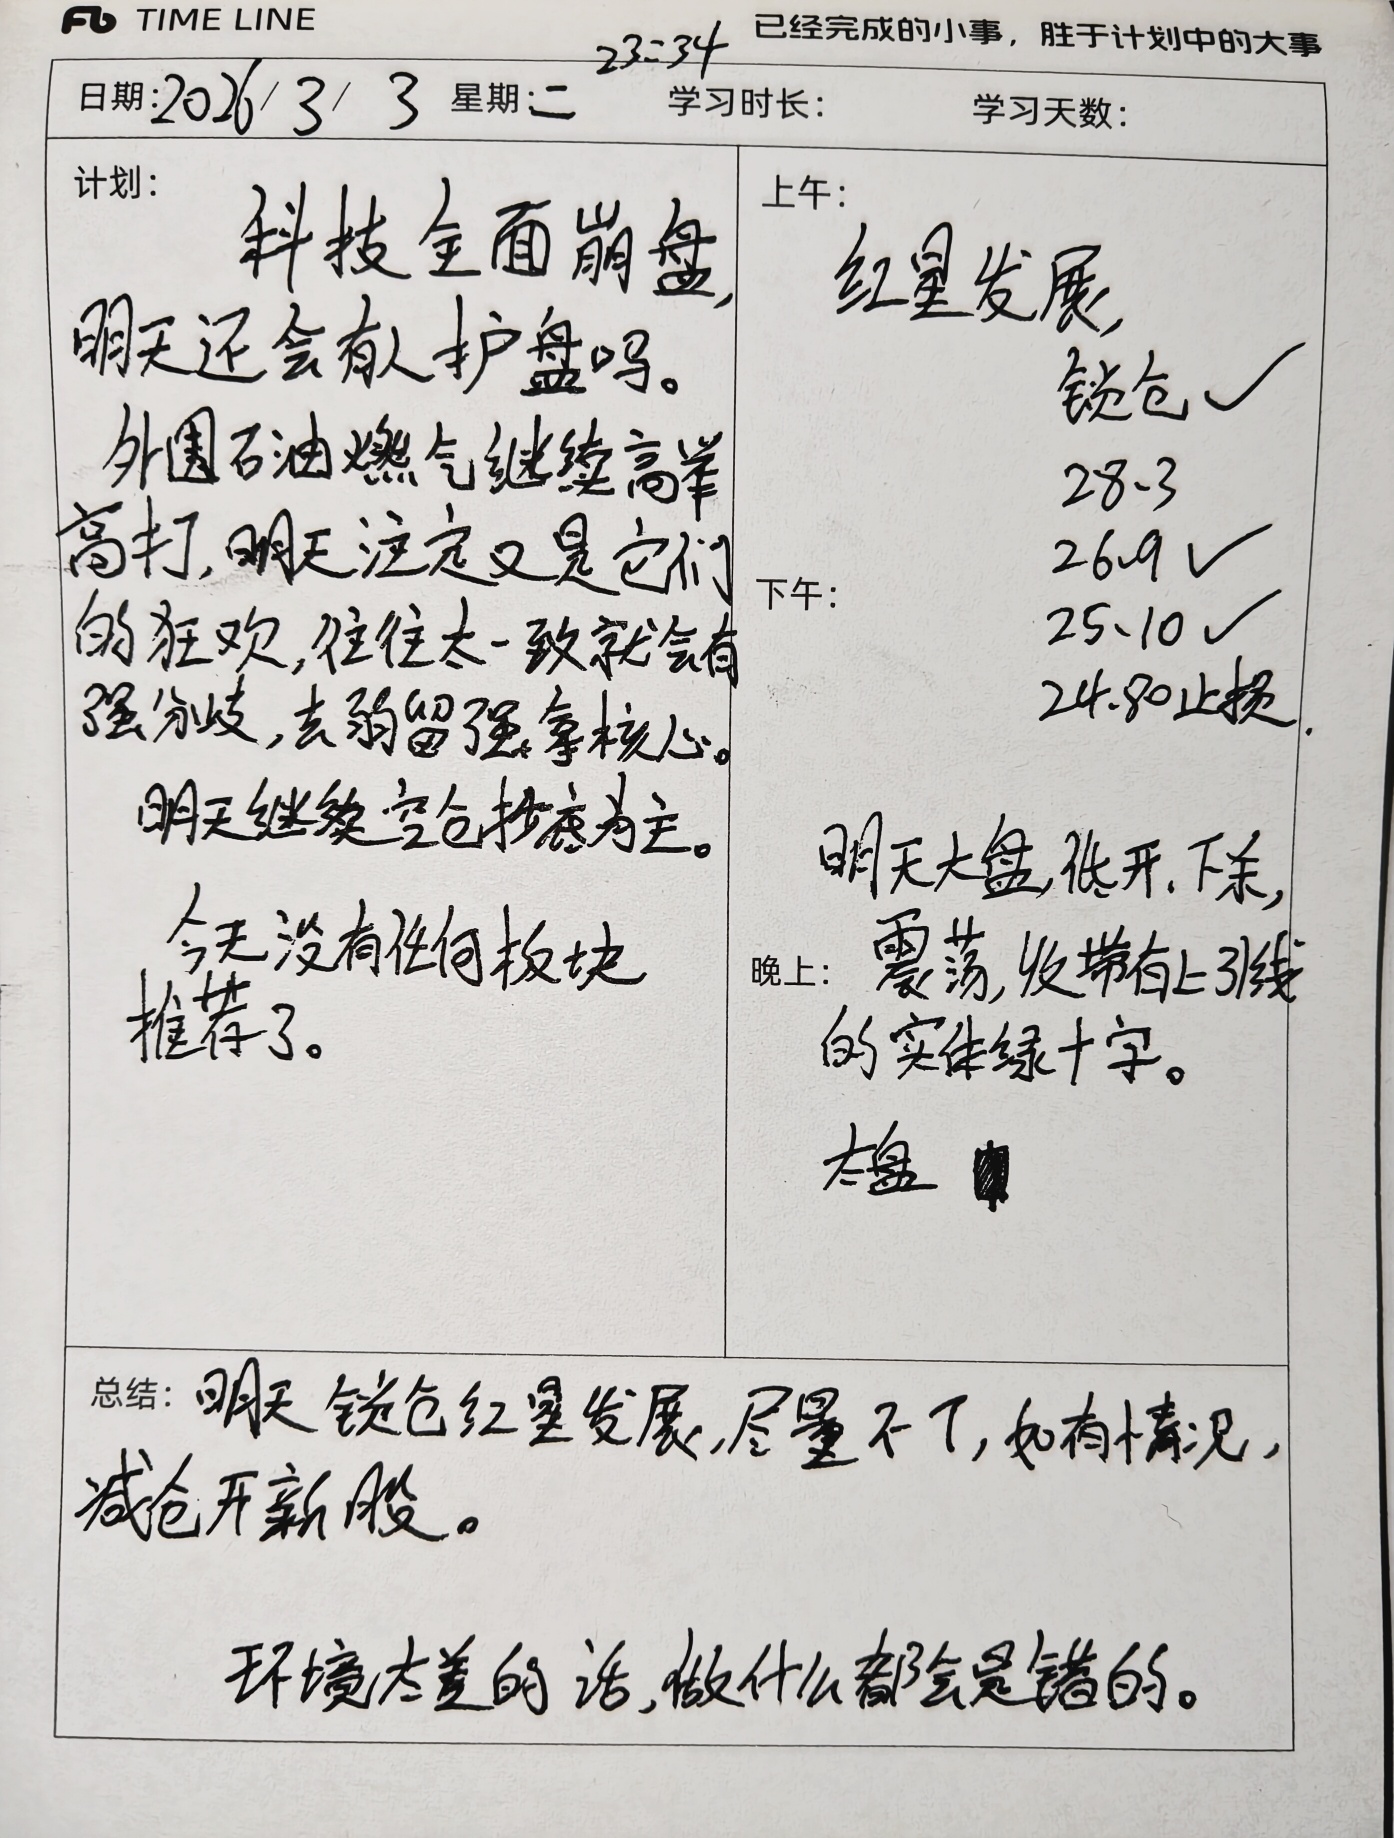 TIME LINE
已经完成的小事，胜于计划中的大事
23:34
日期：2026/3/3 星期：二 学习时长： 学习天数：
计划：
科技全面崩盘，
明天还会有人护盘吗。
外围石油燃气继续高举
高打，明天注定又是它们
的狂欢，往往太一致就会有
强分歧，去弱留强，拿核心。
明天继续空仓抄底为主。
今天没有任何板块
推荐了。
上午：
红星发展，
锁仓✓
28.3
26.9✓
下午：
25.10✓
24.80止损.
明天大盘，低开，下杀，
晚上：
震荡，收带有上引线
的实体绿十字。
大盘
总结：明天锁仓红星发展，尽量不T，如有情况，
减仓开新股。
环境太差的话，做什么都会是错的。